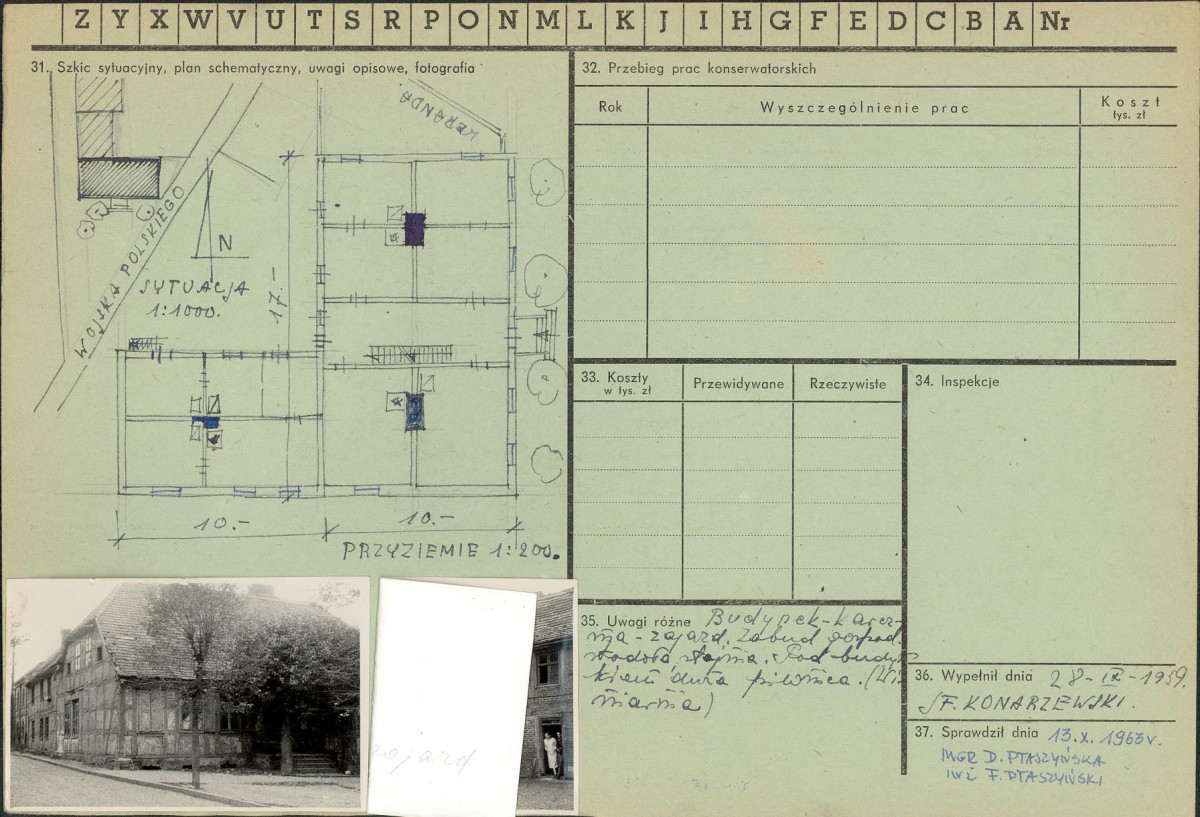 Z Y X W V U T S R P O N M L K J I H G F E D C B A Nr
31. Szkic sytuacyjny, plan schematyczny, uwagi opisowe, fotografia
WERANDA
WOJSKA POLSKIEGO
N
SYTUACJA
1:1000.
17.-
10.-
10.-
PRZYZIEMIE 1:200.
zajazd
32. Przebieg prac konserwatorskich
Rok
Wyszczególnienie prac
Koszt
tys. zł
33. Koszty
w tys. zł
Przewidywane
Rzeczywiste
34. Inspekcje
35. Uwagi różne Budynek-karcz-
ma-zajazd. Zabud gospod.
stodoła, stajnia. Pod budyn
kiem duża piwnica. (Wi
niarnia)
36. Wypełnił dnia 28-IX-1959.
F. KONARZEWSKI.
37. Sprawdził dnia 13.X.1963r.
MGR D. PTASZYŃSKA
INŻ F. PTASZYŃSKI